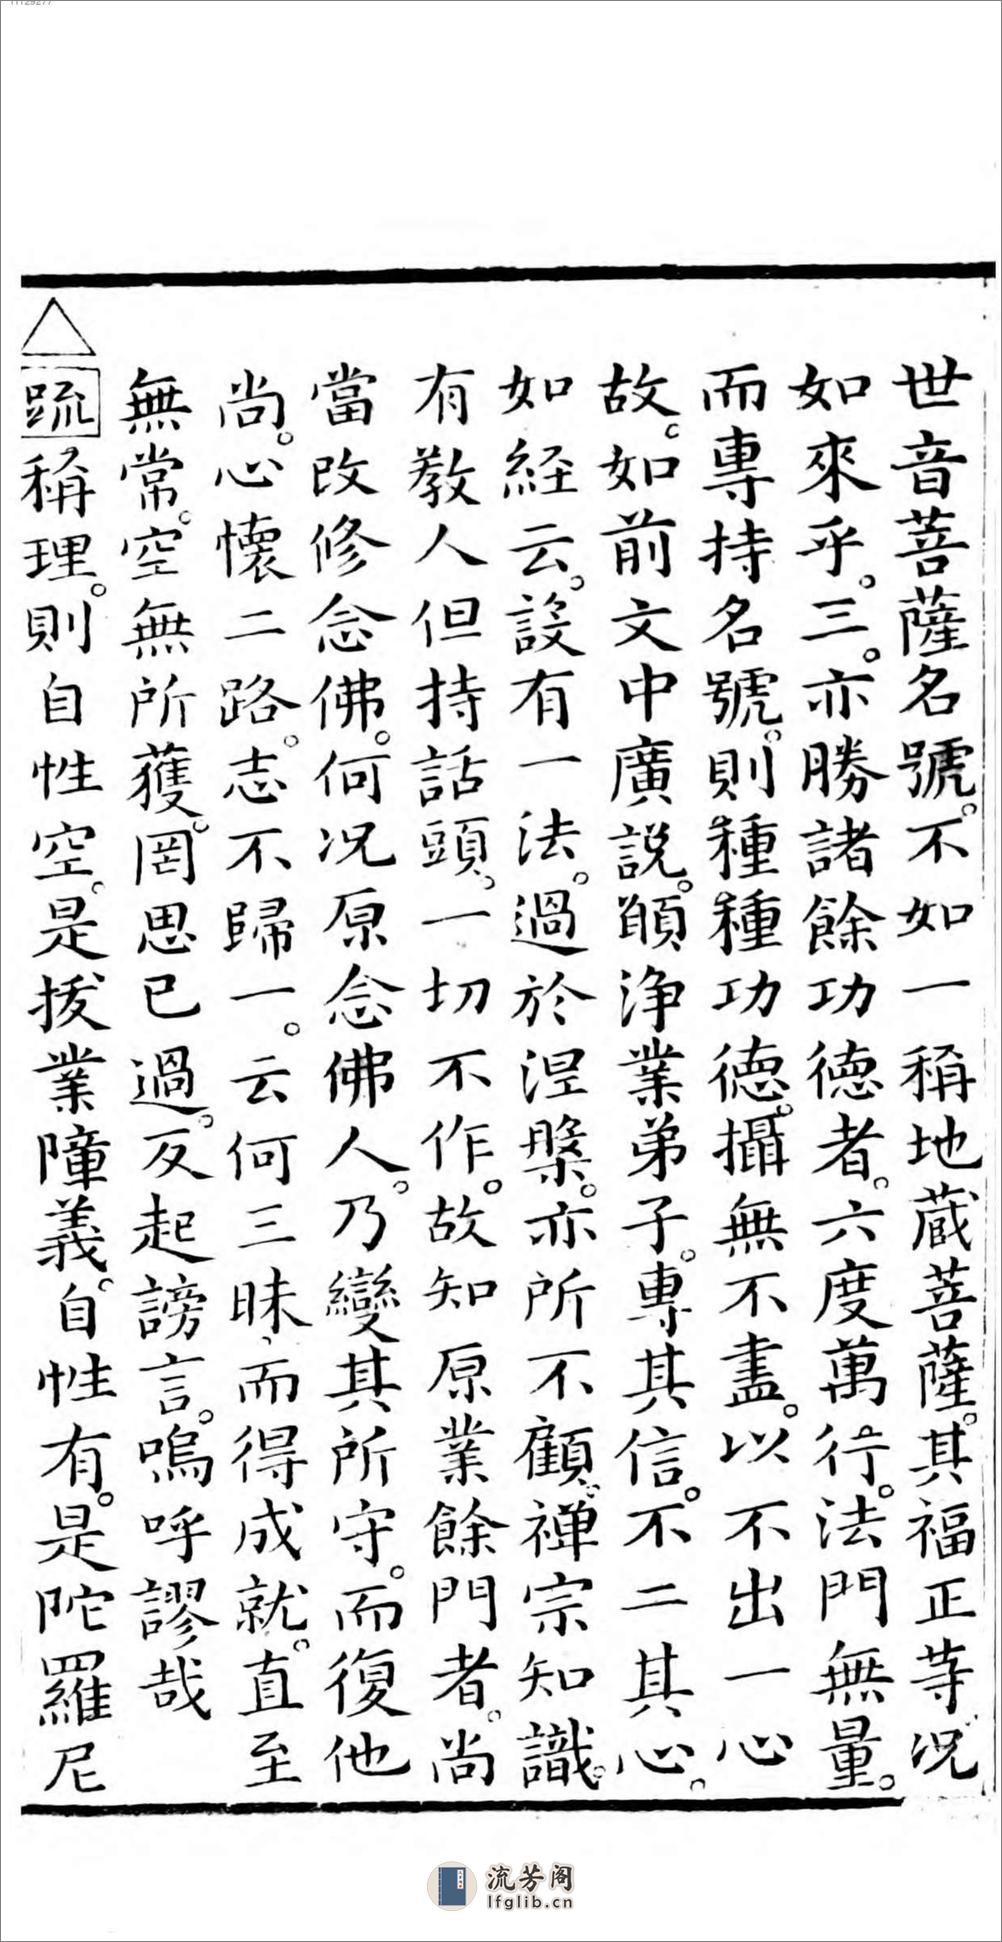 世音菩薩名號。不如一稱地蔵菩薩。其福正等。况
如來乎。三。亦勝諸餘功德者。六度萬行。法門無量。
而專持名號。則種種功德。攝無不盡。以不出一心
故。如前文中廣説。願淨業弟子。專其信。不二其心。
如經云。設有一法。過於涅槃。亦所不顧。禅宗知識。
有教人但持話頭、一切不作。故知原業餘門者。尚
當改修念佛。何况原念佛人。乃變其所守。而復他
尚。心懷二路。志不歸一。云何三昧、而得成就。直至
無常。空無所獲。罔思已過。反起謗言。嗚呼謬哉
△疏稱理。則自性空。是拔業障義。自性有。是陀羅尼
流芳阁
lfglib.cn